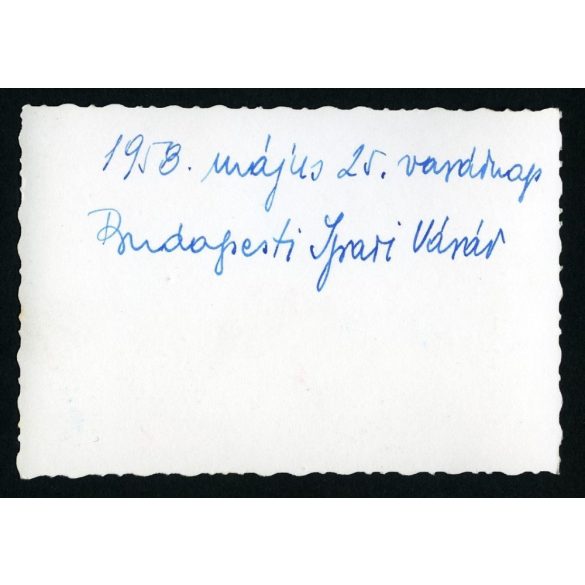 1958. május 25. vasárnap
Budapesti Ipari Vásár